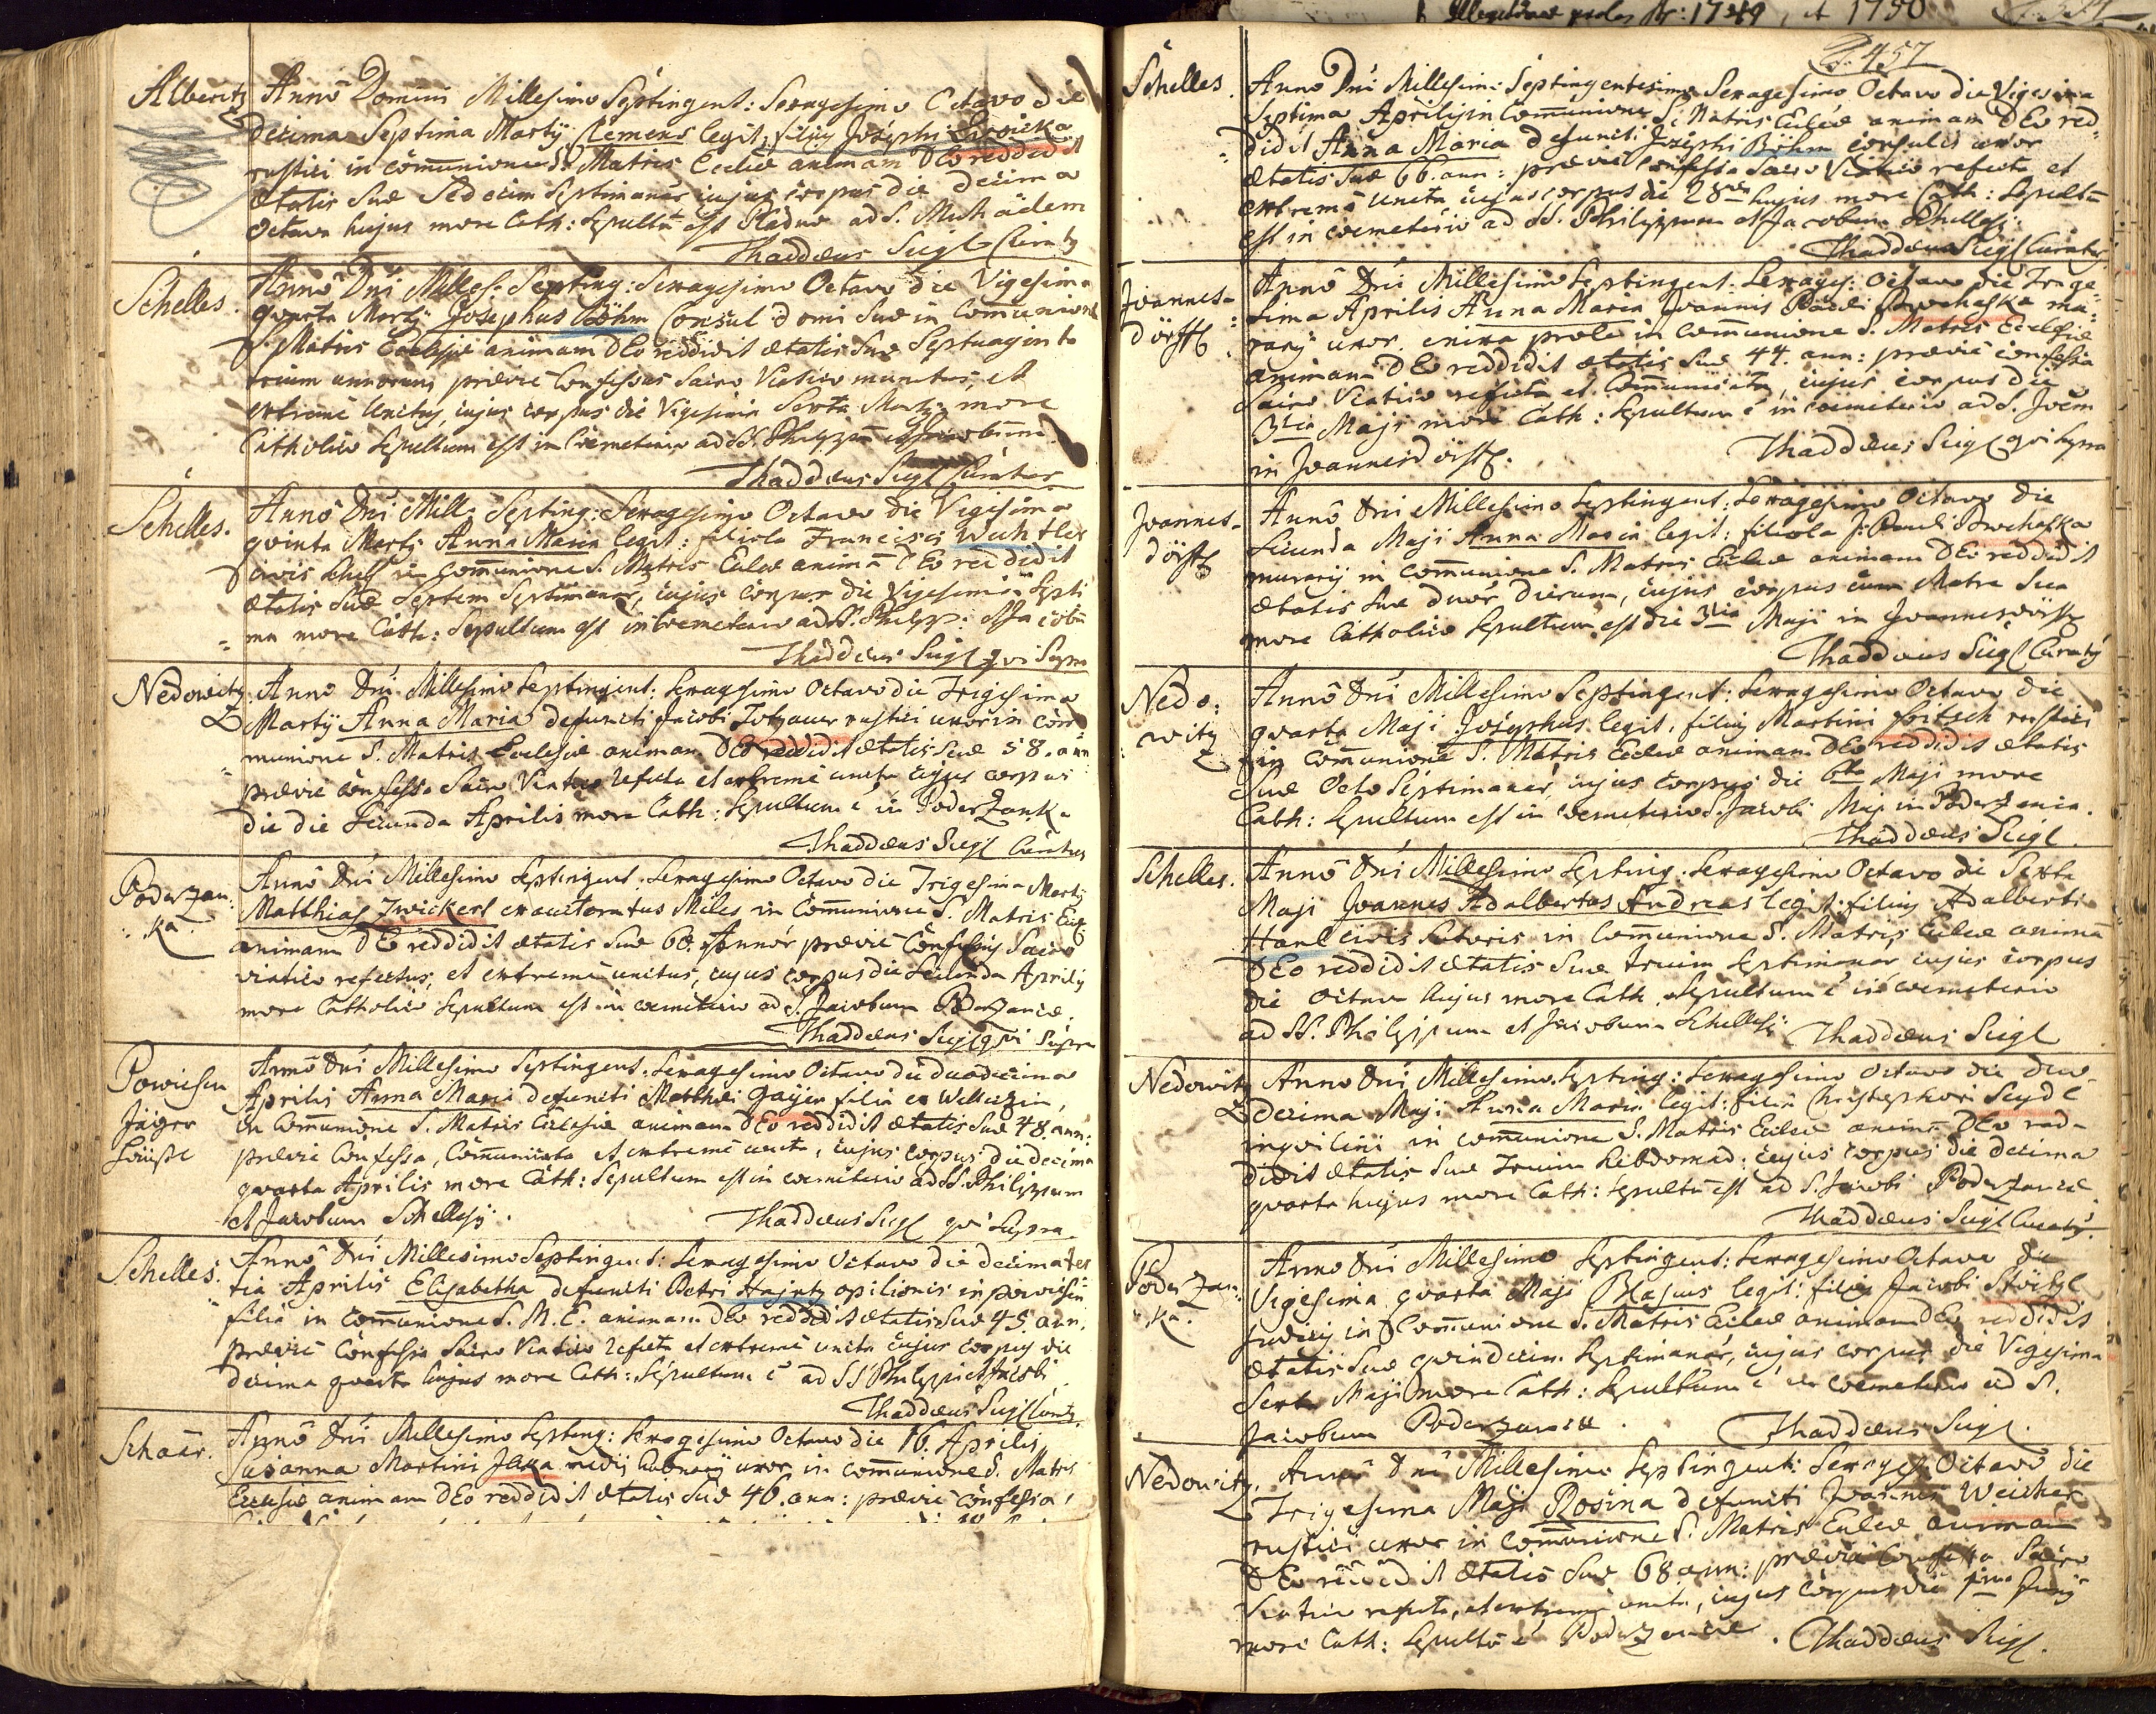 Alberitz
Anno Domini Millesimo Septingent: Sexagesimo Octavo die
decima Septima Martÿ Clemens legit: filius Josephi
rustici in com̄unione S. Matris Eccliæ animam DEo reddidit
ætatis suæ Sedecim Septimanar̄ cujus corpus die decima
octava hujus more Cath: Sepultū est ad S. Michäelem
Thaddæus Siegl Curatus
Schelles.
Anno Dn̄i Milles: Septing: Sexagesimo Octavo die Vigesima
quarta Martÿ Josephus Böhm Consul domi suæ in Com̄unione
S. Matris Ecclesiæ animam DEo reddidit ætatis suæ Septuaginta
trium annorum prævie Confessus Sacro Viatico munitus, et
extreme Unctus, cujus corpus die Vigesima Sexta Martÿ more
Catholico Sepultum est in Cœmeterio ad SS. Philippū et Jacobum.
Thaddæus Siegl Curatus
Schelles.
Anno Dn̄i Mill: Septing: Sexagesimo Octavo die Vigesima
quinta Martÿ Anna Maria legit: filiola Francisci Wuchtler
civis Schell: in Com̄unione S. Matris Eccliæ animā DEo reddidit
ætatis suæ Septem Septimanar̄, cujus corpus die Vigesima Septi
ma more Cath: Sepultum est in cœmeterio ad SS. Philipp: et Jacobū
Thaddæus Siegl qui Supra
Nedowitz
Anno Dn̄i Millesimo Septingent: Sexagesimo Octavo die Trigesima
Martÿ Anna Maria defuncti Jacobi Totzauer rustici uxor in com̄
munione S. Matris Ecclesiæ animam DEo reddidit ætatis suæ 58. ann
prævie confessa Sacro Viatico refecta et extreme uncta cujus corpus
die die Secunda Aprilis more Cath: Sepultum ē in Poderzank:
Thaddæus Siegl Curatus
Poderzan:
ka.
Anno Dn̄i Millesimo Septingent: Sexagesimo Octavo die Trigesima Martÿ
Matthias Zwickerl exauctoratus Miles in Com̄unione S. Matris Eccl
animam DEo reddidit ætatis suæ 60. Annor̄ prævie Confessus Sacro
viatico refectus, et extreme unctus, cujus corpus die Secunda Aprilis
more Catholico Sepultum est in cœmeterio ad S. Jacobum Poderzancæ.
Thaddæus Siegl qui Supra
Powiesen
Jäger
Häußl
Anno Dn̄i Millesimo Septingent: Sexagesimo Octavo die duodecima
Aprilis Anna Maria defuncti Matthæi Gaÿer filia ex
in Com̄unione S. Matris Ecclesiæ animam DEo reddidit ætatis suæ 48. ann:
prævie Confessa, Com̄unicata et extreme uncta, cujus corpus die decima
quarta Aprilis more Cath: Sepultum est in cœmeterio ad SS. Philippum
et Jacobum Schellesÿ.
Thaddæus Siegl qui Supra
Schelles.
Anno Dn̄i Millesimo Septingent: Sexagesimo Octavo die decima ter
tia Aprilis Elisabetha defuncti Petri Hajntz opilionis in powiesen
filia in com̄unione S. M. E. animam DEo reddidit ætatis suæ 45. ann.
prævie Confessa Sacro Viatico refecta et extreme uncta cujus corpus die
decima quarta hujus more Cath: Sepultum ē ad SS Philippi et Jacobi
Thaddæus Siegl Curat9
Schaar.
Anno Dn̄i Millesimo Septing: Sexagesimo Octavo die 16. Aprilis
Susanna Martini uxor in com̄unione S. Matris
Ecclesiæ animam DEo reddidit ætatis suæ 46. ann: prævie Confessa,
1750
P. 457
Schelles.
Anno Dn̄i Millesim: Septingentesimo Sexagesimo Octavo die Vigesima
Septima Aprilis in Com̄unione S. Matris Eccliæ animam DEo red
didit Anna Maria defuncti Josephi Böhm consulis uxor
ætatis suæ 66. ann: prævie confessa Sacro Viatico refecta et
extreme uncta cujus corpus die 28va hujus more Cath: Sepultū
est in cœmeterio ad SS. Philippum et Jacobum Schellesÿ.
Thaddæus Siegl Curatus
Joannes-
dörffl
Anno Dn̄i Millesimo Septingent: Sexages: Octavo die Trige
sima Aprilis Anna Maria Joannis Pauli Prochaska mu
rarÿ uxor. enixa prole in com̄unione S. Matris Ecclesiæ
animam DEo reddidit ætatis suæ 44. ann: prævie confessa
Sacro Viatico refecta et Com̄unicata, cujus corpus die
3tia Maji more Cath: Sepultum ē in cœmeterio ad S. Joēm
in Joannesdörffl.
Thaddæus Siegl qui Supra
Joannes-
dörffl
Anno Dn̄i Millesimo Septingent: Sexagesimo Octavo die
Secunda Maji Anna Maria legit: filiola J: Pauli Prochaska
murarÿ in com̄unione S. Matris Eccliæ animam DEo reddidit
ætatis suæ duor̄ dierum, cujus corpus cum Matre sua
more Catholico Sepultum est die 3tia Maji in Joannesdörffl
Thaddæus Siegl Curatus
Nedo:
witz
Anno Dn̄i Millesimo Septingent: Sexagesimo Octavo die
quarta Maji Josephus legit: filius Martini Fritsch rustici
in Com̄unione S. Matris Eccliæ animam DEo reddidit ætatis
suæ Octo Septimanar̄, cujus corpus die 6ta Maji more
Cath: Sepultum est in cœmeterio S. Jacobi Maj: in Poderzanca.
Thaddæus Siegl.
Schelles.
Anno Dn̄i Millesimo Septing: Sexagesimo Octavo die Sexta
Maji Joannes Adalbertus Andreas legit: filius Adalberti
Hanl civis Sutoris in Com̄unione S. Matris Eccliæ animā
DEo reddidit ætatis suæ trium Septimanar̄ cujus corpus
die Octava hujus more Cath. Sepultum ē in cœmeterio
ad SS. Philippum et Jacobum Schellesÿ.
Thaddæus Siegl
Nedowitz
Anno Dn̄i Millesimo Septing: Sexagesimo Octavo die duo
decima Maji Anna Maria legit: filia Christophori Seydl
inquilini in com̄unione S. Matris Eccliæ animā DEo red
didit ætatis suæ Trium hebdomad: cujus corpus die decima
quarta hujus more Cath: sepultū est ad S. Jacobi Poderzancæ
Thaddæus Siegl Curatus.
Poderzan:
ka.
Anno Dn̄i Millesimo Septingent: Sexagesimo Octavo die
Vigesima quarta Maji Blasius legit: filius Jacobi
in Com̄unione S. Matris Eccliæ animam DEo reddidit
ætatis suæ quindecim Septimanar̄, cujus corpus die Vigesima
Sexta Maji more Cath: Sepultum ē in cœmeterio ad S.
Jacobum Poderzancæ.
Thaddæus Siegl.
Nedowitz.
Anno Dn̄i Millesimo Septingent: Sexages: Octavo die
Trigesima Maji Rosina defuncti Joannis Weicker
rustici uxor in Com̄unione S. Matris Eccliæ animam
DEo reddidit ætatis suæ 68 ann: prævie Confessa Sacro
Viatico refecta, et extreme uncta, cujus corpus die 1ma Junÿ
more Cath: Sepultū ē Poderzancæ.
Thaddæus Siegl.